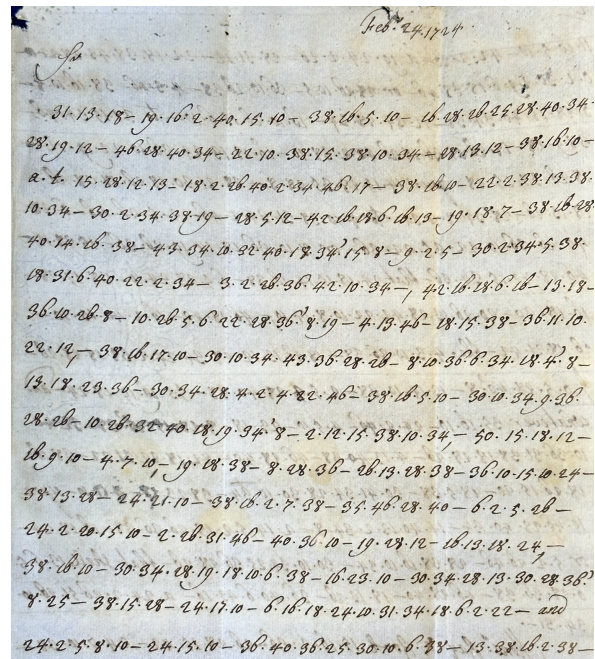 Feb.ʳ 24. 1724
Sr
31·13·18– 19·16·2·40·15·10– 38·16·5·10– 16·28·26·25·28·40·34–
28·19·12– 46·28·40·34– 22·10·38·15·38·10·34– 28·13·12– 38·16·10–
a·t· 15·28·12·13– 18·2·26·40·2·34·46·17– 38·16·10– 22·2·38·13·38·
10·34– 30·2·34·38·19– 28·5·12– 42·16·18·6·16·13– 19·18·7– 38·16·28·
40·14·16·38– 43·34·10·32·40·18·34'15·8– 9·2·5– 30·2·34·5·38·
18·31·6·40·22·2·34– 3·2·26·36·42·10·34–, 42·16·18·6·16– 13·18–
36·10·26·8– 10·26·5·6·22·28·36'8·19– 4·13·46– 18·15·38– 36·11·10·
22·12,– 38·16·17·10– 30·10·34·43·36·28·26– 8·10·36·6·34·18·4'8–
13·18·23·36– 30·34·28·4·2·4·22·46– 38·16·5·10– 30·10·34·9·36·
28·26– 10·26·32·40·18·19·34'8– 2·12·15·38·10·34,– 50·15·18·12–
16·9·10– 4·7·10,– 19·18·38– 8·28·36– 26·13·28·38– 36·10·15·10·24–
38·13·28– 24·21·10– 38·16·2·7·38– 35·46·28·40– 6·2·5·26–
24·2·20·15·10– 2·26·31·46– 40·36·10– 19·28·12– 16·13·18·24,–
38·16·10– 30·34·28·19·18·10·6·38– 16·23·10– 30·34·28·13·30·28·36'
8·25– 38·15·28– 24·17·10– 6·16·18·24·10·31·34·18·6·2·22– and
24·2·5·8·10– 24·15·10– 36·40·36·25·30·10·6·38– 13·38·16·2·38–